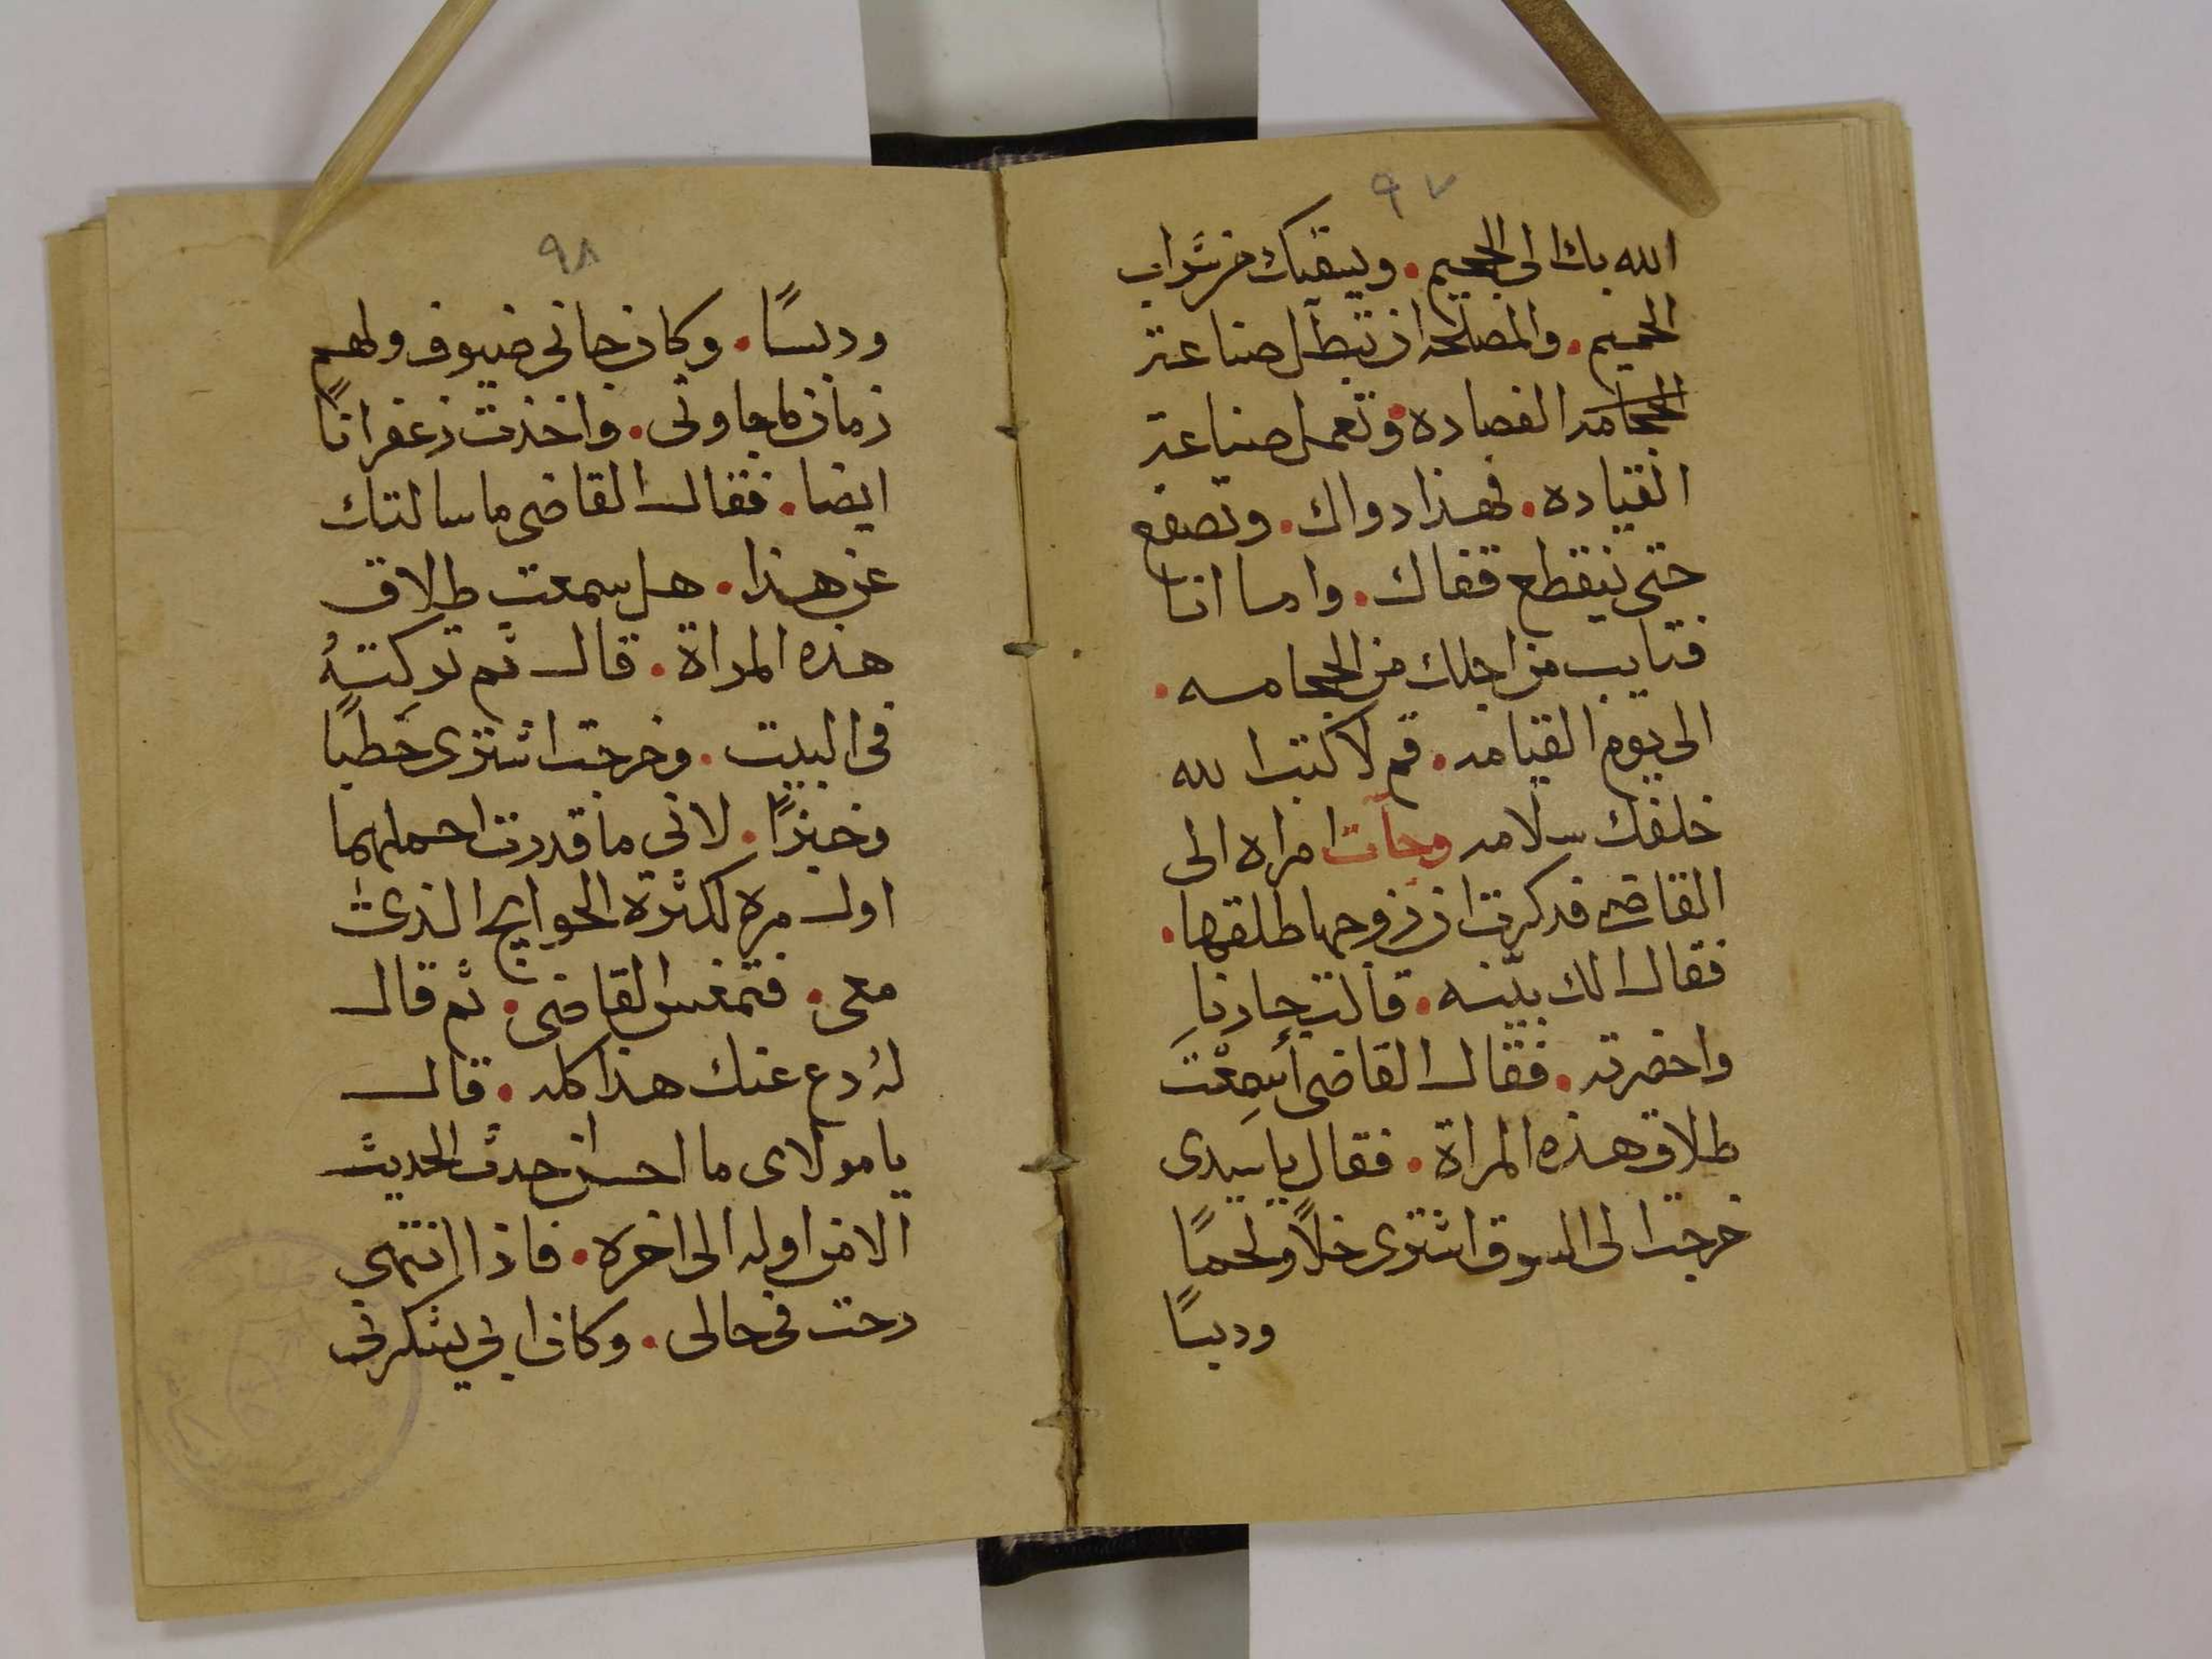 ٩٧
الله بك الى الجحيم. ويسقيك من شراب
الحميم. والمصلحه ان تبطل صناعة
الحجامه الفصاده وتعمل صناعة
القياده. فهذا دواك. وتصفع
حتى ينقطع قفاك. واما انا
فتايب من اجلك من الحجامه.
الى يوم القيامه. قم لا كتب الله
خلفك سلامه وجآت امراه الى
القاضي فذكرت ان زوجها طلقها.
فقال الك بيّنه. قالت جارنا
واحضرته. فقال القاضى أسمِعْتَ
طلاق هذه المراة. فقال يا سيدى
خرجت الى السوق اشترى خلاً ولحمًا
ودبسًا
٩٨
ودبسًا. وكان جانى ضيوف ولهم
زمان ما جاونى. واخذت زعفرانًا
ايضا. فقال القاضى ما سالتك
عن هذا. هل سمعت طلاق
هذه المراة. قال ثم تركتهُ
فى البيت. وخرجت اشترى حطبًا
وخبزًا. لاني ما قدرت احملهما
اول مره لكثرة الحوايج الذى
معى. فتمغص القاضى. ثم قال
لهُ دع عنك هذا كله. قال
يا مولاى ما احسن حدث الحديث
الا من اوله الى اخره. فاذا انتهى
رحت فى حالى. وكان ابي يشكرنى